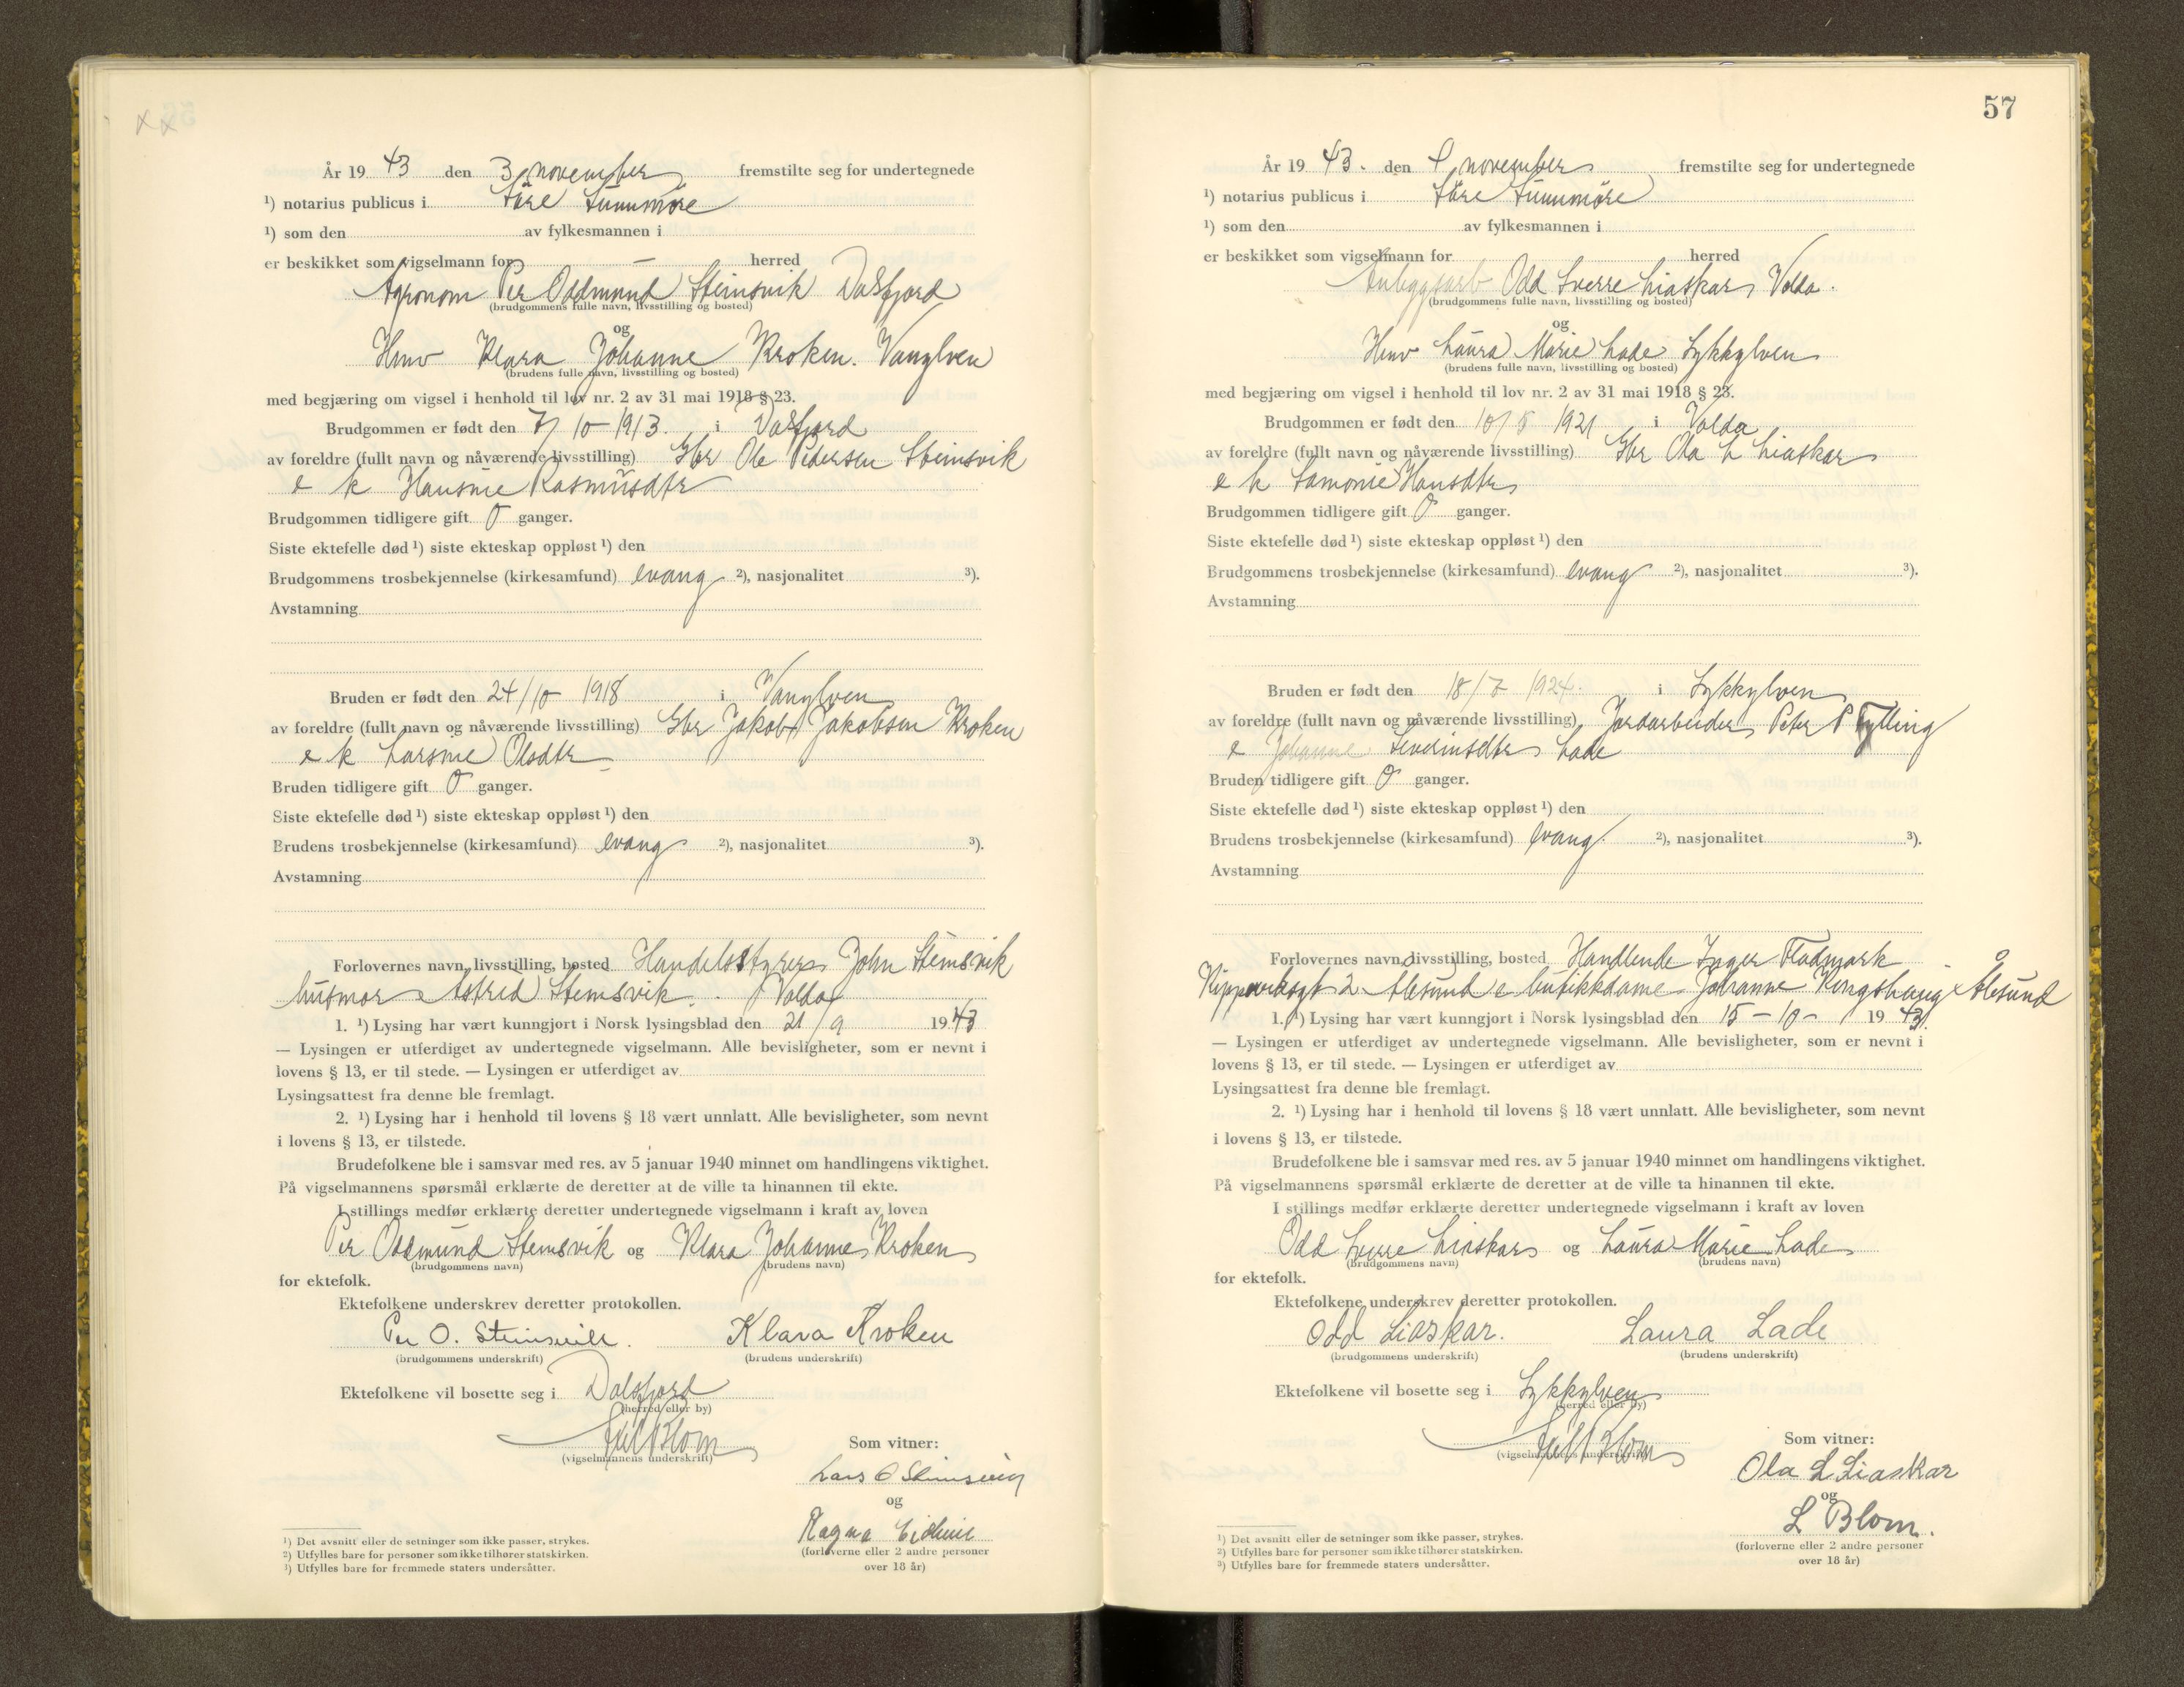 År 19 43 den 3 november fremstilte seg for undertegnede
¹) notarius publicus i Søre Sunnmøre
¹) som den av fylkesmannen i
er beskikket som vigselmann for — herred
Agronom Per Oddmund Steinsvik Dalsfjord
(brudgommens fulle navn, livsstilling og bosted)
og
Hmv Klara Johanne Kroken. Vanylven
(brudens fulle navn, livsstilling og bosted)
med begjæring om vigsel i henhold til lov nr. 2 av 31 mai 1918 § 23.
Brudgommen er født den 7/10-1913. i Dalsfjord
av foreldre (fullt navn og nåværende livsstilling) Gbr Ole Pedersen Steinsvik
e k Hansine Rasmusdtr
Brudgommen tidligere gift 0 ganger.
Siste ektefelle død ¹) siste ekteskap oppløst ¹) den
Brudgommens trosbekjennelse (kirkesamfund) evang ²), nasjonalitet ³).
Avstamning
Bruden er født den 24/10 1918 i Vanylven
av foreldre (fullt navn og nåværende livsstilling) Gbr Jakob Jakobsen Kroken
e k Larsine Olsdtr
Bruden tidligere gift 0 ganger.
Siste ektefelle død ¹) siste ekteskap oppløst ¹) den
Brudens trosbekjennelse (kirkesamfund) evang ²), nasjonalitet ³).
Avstamning
Forlovernes navn, livsstilling, bosted Handelsstyrer John Steinsvik
husmor Astrid Steinsvik. Volda
1. ¹) Lysing har vært kunngjort i Norsk lysingsblad den 21/9 19 43
— Lysingen er utferdiget av undertegnede vigselmann. Alle bevisligheter, som er nevnt i
lovens § 13, er til stede. — Lysingen er utferdiget av
Lysingsattest fra denne ble fremlagt.
2. ¹) Lysing har i henhold til lovens § 18 vært unnlatt. Alle bevisligheter, som nevnt
i lovens § 13, er tilstede.
Brudefolkene ble i samsvar med res. av 5 januar 1940 minnet om handlingens viktighet.
På vigselmannens spørsmål erklærte de deretter at de ville ta hinannen til ekte.
I stillings medfør erklærte deretter undertegnede vigselmann i kraft av loven
Per Oddmund Steinsvik og Klara Johanne Kroken
(brudgommens navn) (brudens navn)
for ektefolk.
Ektefolkene underskrev deretter protokollen.
Per O. Steinsvik. Klara Kroken
(brudgommens underskrift) (brudens underskrift)
Ektefolkene vil bosette seg i Dalsfjord
(herred eller by)
Blom
(vigselmannens underskrift)
Som vitner:
Lars O Steinsvik
og
Ragna
(forloverne eller 2 andre personer
over 18 år)
¹) Det avsnitt eller de setninger som ikke passer, strykes.
²) Utfylles bare for personer som ikke tilhører statskirken.
³) Utfylles bare for fremmede staters undersåtter.
57
År 19 43. den 4 november fremstilte seg for undertegnede
¹) notarius publicus i Søre Sunnmøre
¹) som den av fylkesmannen i
er beskikket som vigselmann for herred
Anleggsarb Odd Sverre Liaskar, Volda.
(brudgommens fulle navn, livsstilling og bosted)
og
Hmv Laura Marie Lade Sykkylven
(brudens fulle navn, livsstilling og bosted)
med begjæring om vigsel i henhold til lov nr. 2 av 31 mai 1918 § 23.
Brudgommen er født den 10/5 1921 i Volda
av foreldre (fullt navn og nåværende livsstilling) Gbr Ola L Liaskar
e k Samonie Hansdtr
Brudgommen tidligere gift 0 ganger.
Siste ektefelle død ¹) siste ekteskap oppløst ¹) den
Brudgommens trosbekjennelse (kirkesamfund) evang ²), nasjonalitet ³).
Avstamning
Bruden er født den 18/7 1924. i Sykkylven
av foreldre (fullt navn og nåværende livsstilling) Jordarbeider Peter P Tylling
e Johanne Severinsdtr Lade
Bruden tidligere gift 0 ganger.
Siste ektefelle død ¹) siste ekteskap oppløst ¹) den
Brudens trosbekjennelse (kirkesamfund) evang ²), nasjonalitet ³).
Avstamning
Forlovernes navn, livsstilling, bosted Handlende Inger Fladmark
2 Ålesund e butikkdame Johanne Ringshaug Ålesund
1. ¹) Lysing har vært kunngjort i Norsk lysingsblad den 15-10- 19 43.
— Lysingen er utferdiget av undertegnede vigselmann. Alle bevisligheter, som er nevnt i
lovens § 13, er til stede. — Lysingen er utferdiget av
Lysingsattest fra denne ble fremlagt.
2. ¹) Lysing har i henhold til lovens § 18 vært unnlatt. Alle bevisligheter, som nevnt
i lovens § 13, er tilstede.
Brudefolkene ble i samsvar med res. av 5 januar 1940 minnet om handlingens viktighet.
På vigselmannens spørsmål erklærte de deretter at de ville ta hinannen til ekte.
I stillings medfør erklærte deretter undertegnede vigselmann i kraft av loven
Odd Sverre Liaskar og Laura Marie Lade
(brudgommens navn) (brudens navn)
for ektefolk.
Ektefolkene underskrev deretter protokollen.
Odd Liaskar. Laura Lade
(brudgommens underskrift) (brudens underskrift)
Ektefolkene vil bosette seg i Sykkylven
(herred eller by)
Blom
(vigselmannens underskrift)
Som vitner:
Ola L Liaskar
og
L Blom.
(forloverne eller 2 andre personer
over 18 år)
¹) Det avsnitt eller de setninger som ikke passer, strykes.
²) Utfylles bare for personer som ikke tilhører statskirken.
³) Utfylles bare for fremmede staters undersåtter.